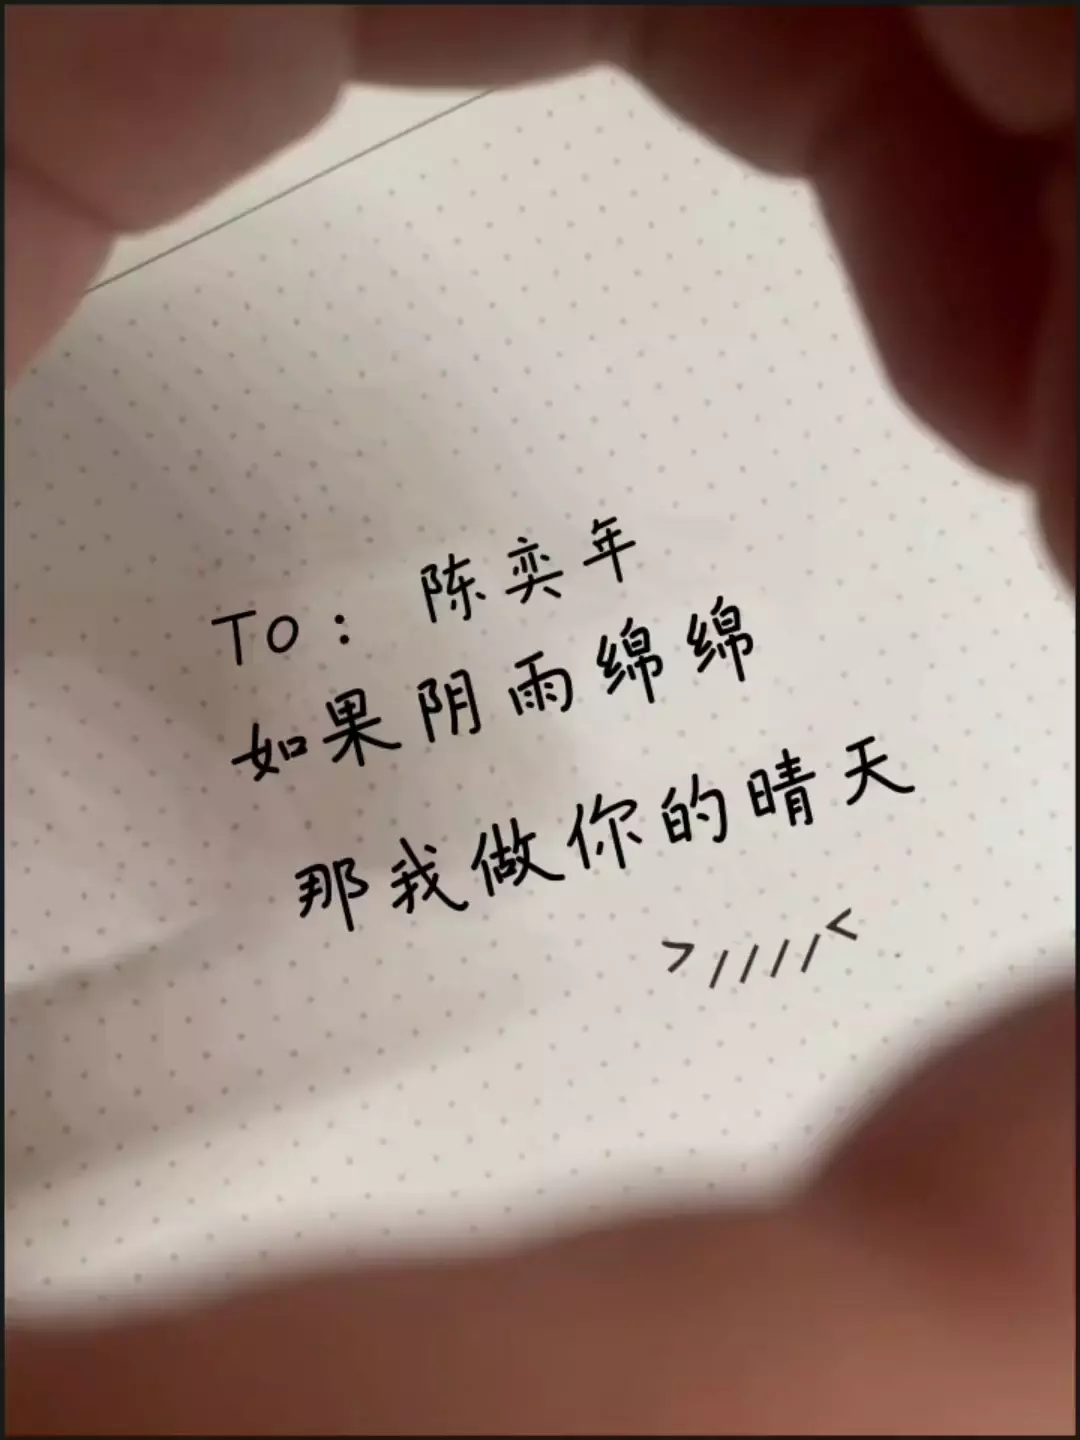 TO：陈奕年
如果阴雨绵绵
那我做你的晴天
>////<